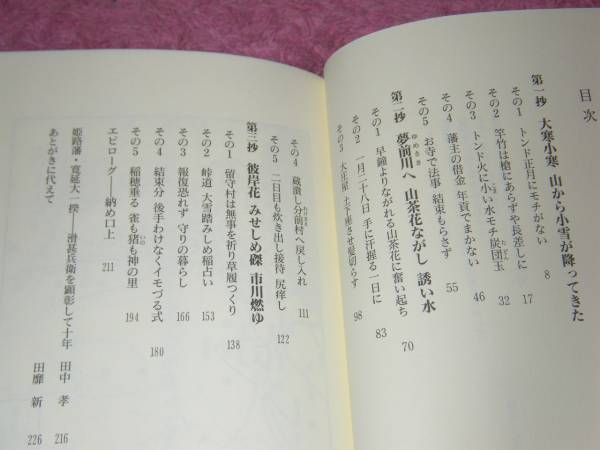 目次
第一抄 大寒小寒 山から小雪が降ってきた
その1 トンド正月にモチがない 8
その2 竿竹は槍にあらずや長差しに 17
その3 トンド火に小い水モチ炭団玉 32
その4 藩主の借金 年貢でまかない 46
その5 お寺で法事 結束もらさず 55
第二抄 夢前川へ 山茶花ながし 誘い水 70
その1 早鐘よりながれる山茶花に奮い起ち 83
その2 一月二十八日 手に汗握る一日に 98
その3 大庄屋
その4 蔵潰し分前村へ戻し入れ 111
その5 二日目も炊き出し接待 尻痒し 122
第三抄 彼岸花 みせしめ磔 市川燃ゆ
その1 留守村は無事を祈り草履つくり 138
その2 峠道 大雪踏みしめ稲占い 153
その3 報復恐れず 守りの暮らし 166
その4 結束分 後手わけなくイモづる式 180
その5 稲穂垂る 雀も猪も神の里 194
エピローグ――納め口上 211
姫路藩・寛延大一揆――滑甚兵衛を顕彰して十年 田中 孝 216
あとがきに代えて 田靡 新 226